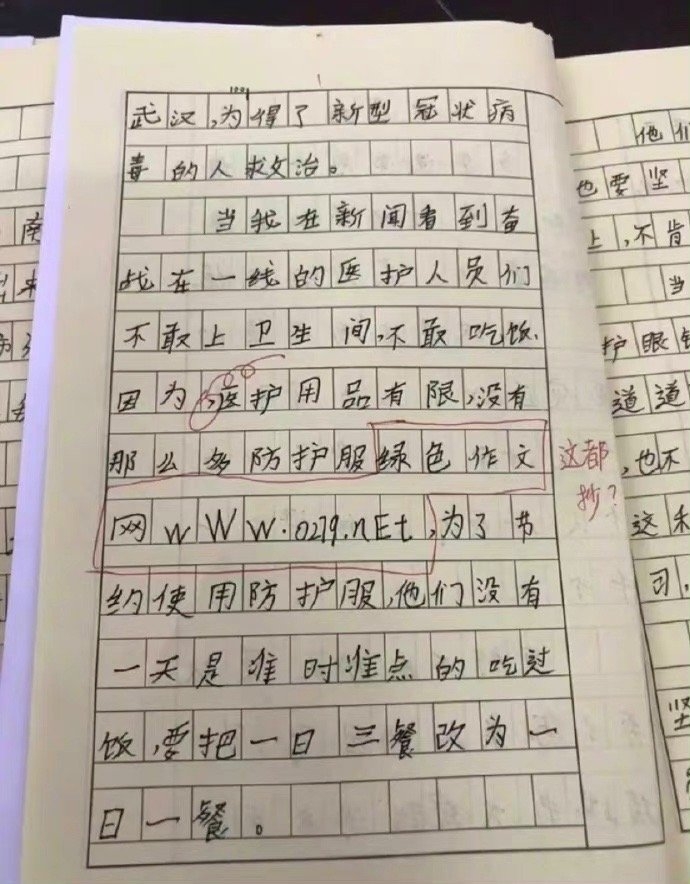 武汉,为得了新型冠状病
毒的人求救治。
当我在新闻看到奋
战在一线的医护人员们
不敢上卫生间,不敢吃饭.
因为,医护用品有限,没有
那么多防护服绿色作文
网wWw.0279.nEt,为了节
约使用防护服,他们没有
一天是准时准点的吃过
饭,要把一日三餐改为一
日一餐。
这都
抄?
他们
也要坚
上,不肯
当
护眼镜
道道
,也不
这和
习.
坚
南